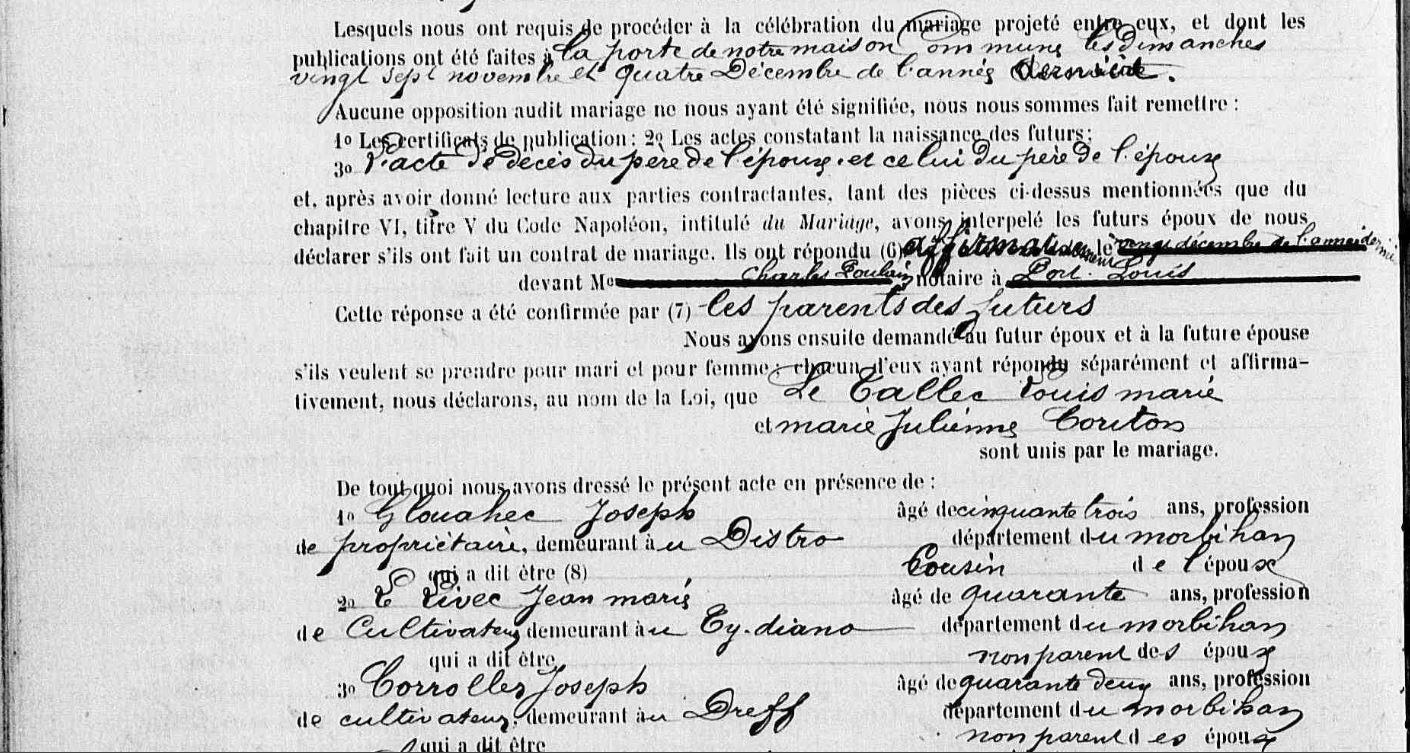 Lesquels nous ont requis de procéder à la célébration du mariage projeté entre eux, et dont les
publications ont été faites à la porte de notre maison Commune les Dimanches
vingt sept novembre et quatre Décembre de l'année dernière.
Aucune opposition audit mariage ne nous ayant été signifiée, nous nous sommes fait remettre :
1o Les certificats de publication : 2o Les actes constatant la naissance des futurs :
3o l'acte de décès du père de l'époux et celui du père de l'épouse
et, après avoir donné lecture aux parties contractantes, tant des pièces ci-dessus mentionnées que du
chapitre VI, titre V du Code Napoléon, intitulé du Mariage, avons interpelé les futurs époux de nous
déclarer s'ils ont fait un contrat de mariage. Ils ont répondu (6) affirmativement le vingt décembre de l'année dernière
devant Me Charles Poulain notaire à Port-Louis
Cette réponse a été confirmée par (7) les parents des futurs
Nous avons ensuite demandé au futur époux et à la future épouse
s'ils veulent se prendre pour mari et pour femme ; chacun d'eux ayant répondu séparément et affirma-
tivement, nous déclarons, au nom de la Loi, que Le Tallec Louis marie
et marie Julienne Couton
sont unis par le mariage.
De tout quoi nous avons dressé le présent acte en présence de :
1o Glouahec Joseph âgé de cinquante trois ans, profession
de propriétaire, demeurant à u Distro département du morbihan
qui a dit être (8) Cousin de l'époux
2o Le Livec Jean marie âgé de quarante ans, profession
de Cultivateur demeurant à u Ty-diano département du morbihan
qui a dit être non parent des époux
3o Corroller Joseph âgé de quarante deux ans, profession
de cultivateur, demeurant à u Dreff département du morbihan
qui a dit être non parent des époux